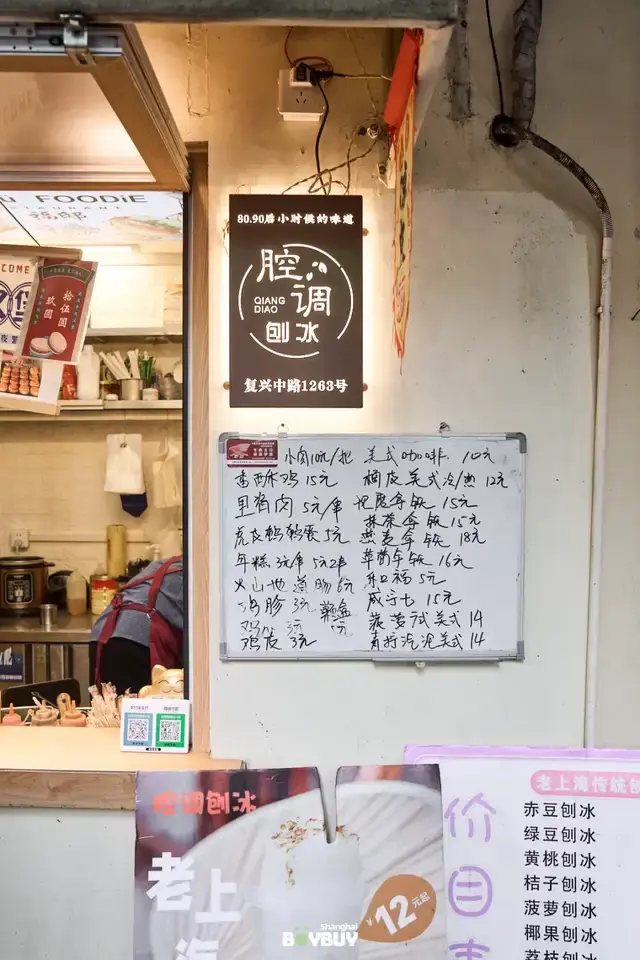 FOODiE
80.90后小时候的味道
腔调
QIANG
DIAO
刨冰
复兴中路1263号
拾伍圆
玖圆
小肉10元/把
香酥鸡15元
里脊肉 5元/串
虎皮鹌鹑蛋5元
年糕 3元/串 5元2串
火山地道肠6元
鸡肠 3元
3元
鸡皮 3元
美式咖啡 10元
橘皮美式冷/热 12元
拿铁 15元
抹茶拿铁 15元
燕麦拿铁 18元
草莓拿铁 16元
可口福 5元
咸宁七 15元
菠萝冰美式 14
青柠气泡美式 14
腔调刨冰
老上海
¥12元起
价目表
老上海传统刨
赤豆刨冰
绿豆刨冰
黄桃刨冰
桔子刨冰
菠萝刨冰
椰果刨冰
荔枝刨冰
Shanghai
BAYBUY